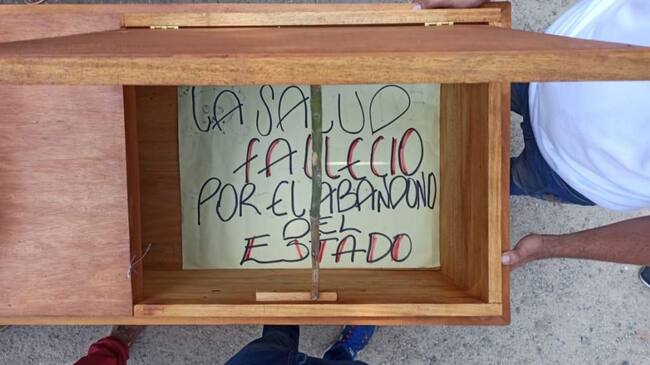 LA SALUD
FALLECIO
POR EL ABANDONO
DEL
ESTADO